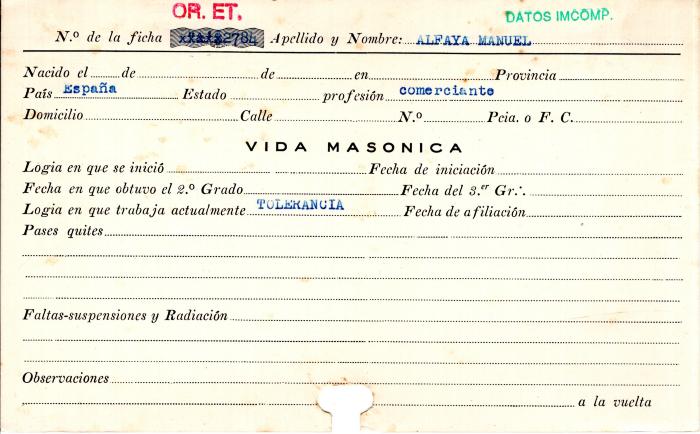 OR. ET.
DATOS IMCOMP.
N.º de la ficha 2784 Apellido y Nombre: ALFAYA MANUEL
Nacido el de de en Provincia
País España Estado profesión comerciante
Domicilio Calle N.º Pcia. o F. C.
VIDA MASONICA
Logia en que se inició Fecha de iniciación
Fecha en que obtuvo el 2.º Grado Fecha del 3.er Gr.·.
Logia en que trabaja actualmente TOLERANCIA Fecha de afiliación
Pases quites
Faltas-suspensiones y Radiación
Observaciones
a la vuelta